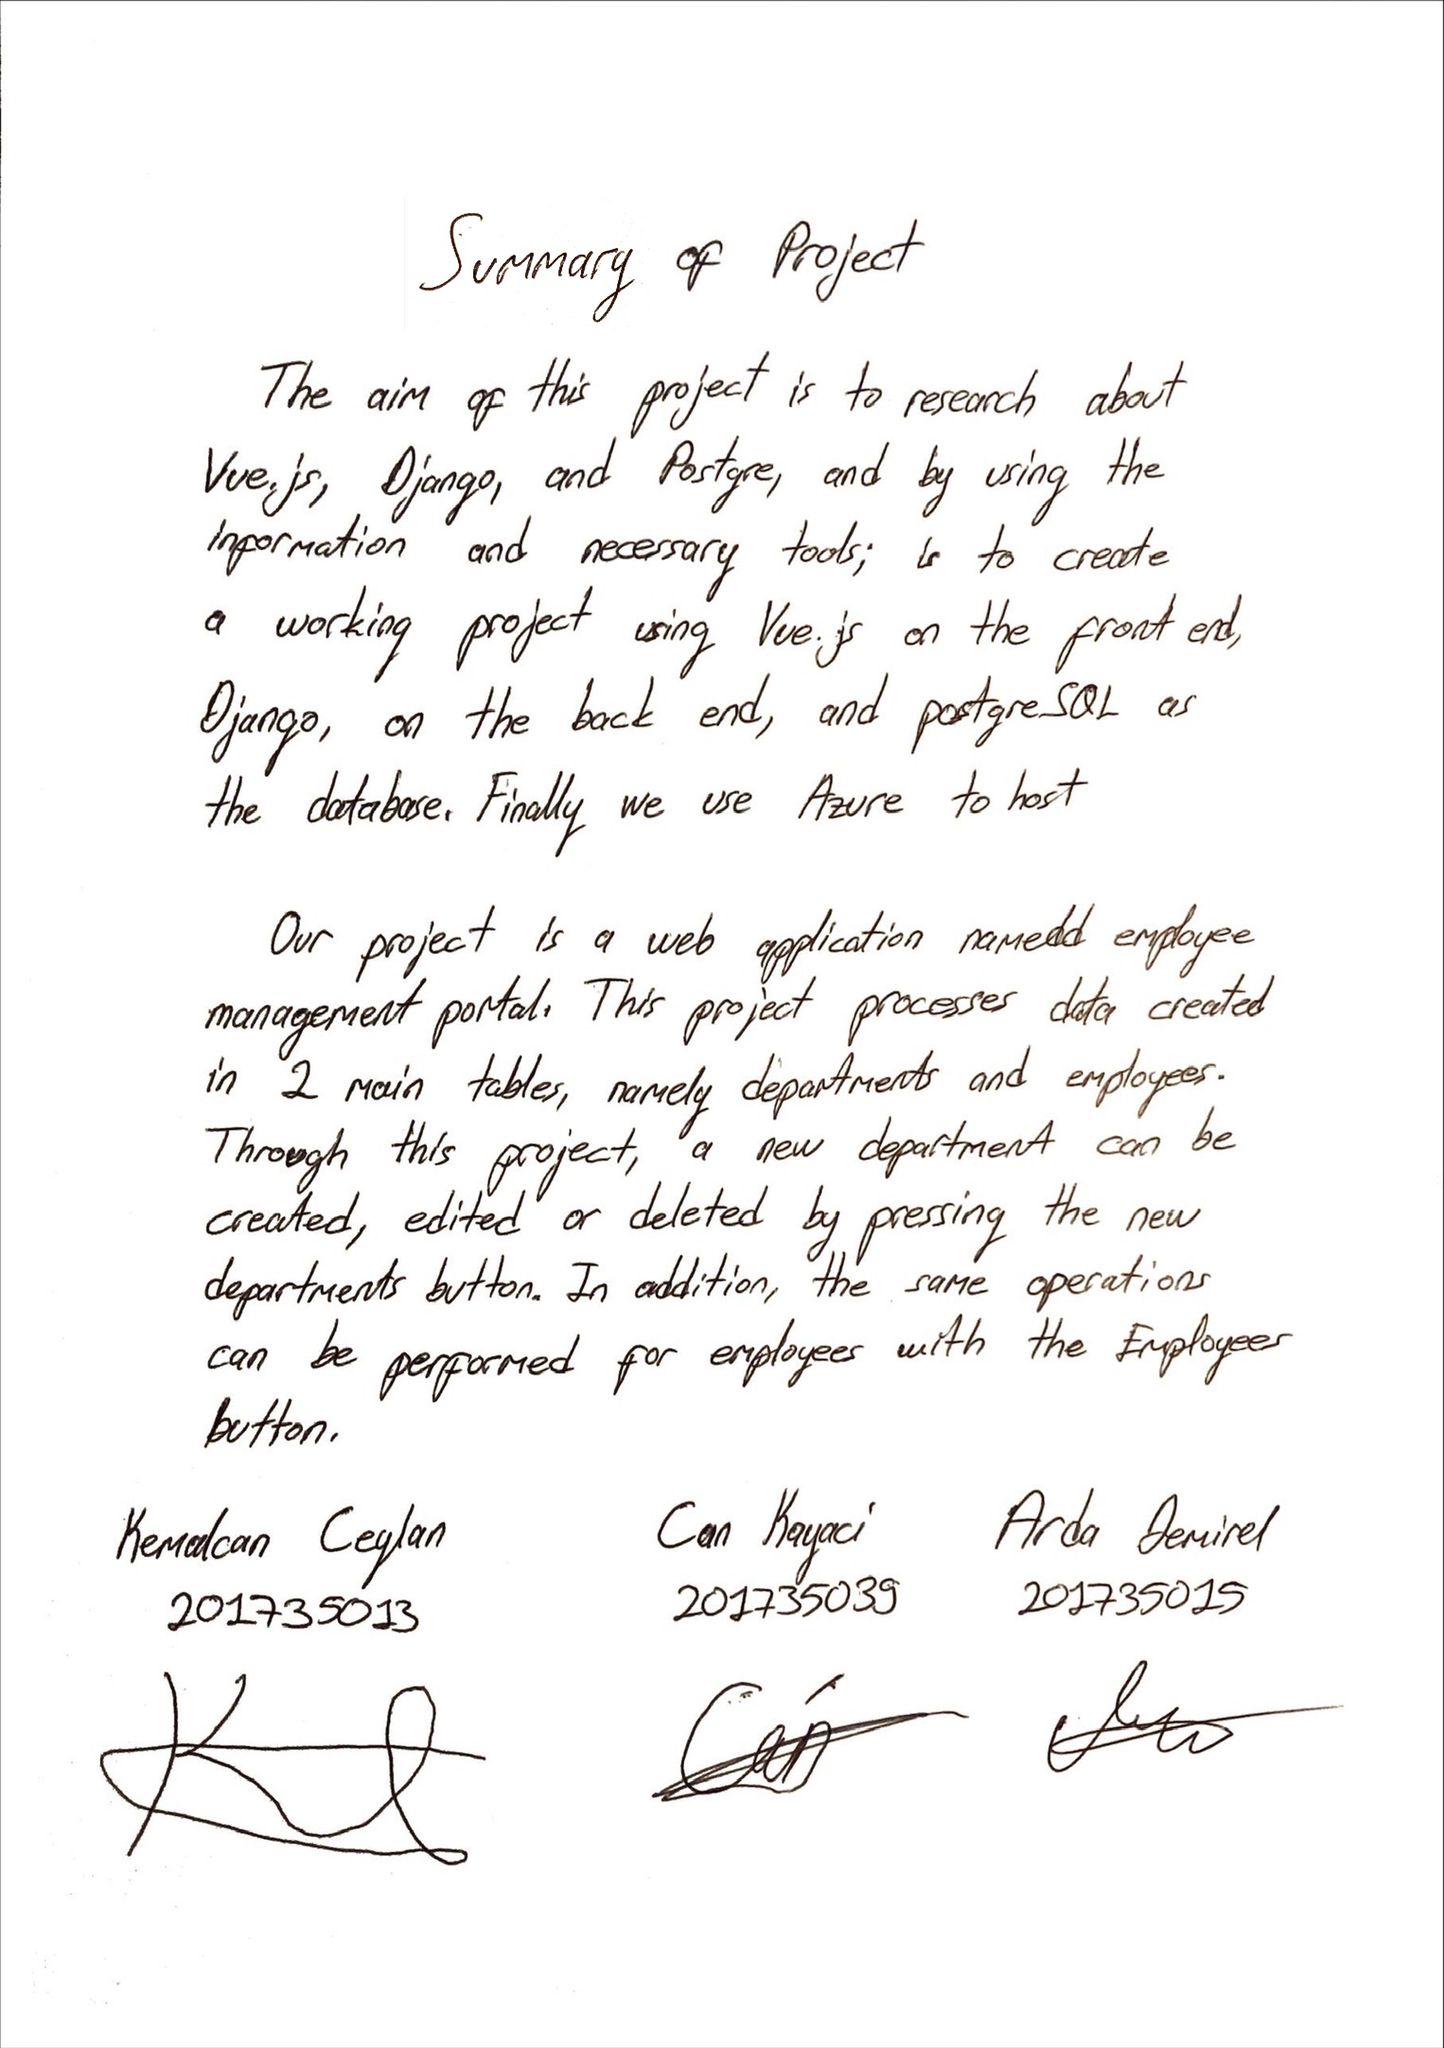 Summary of Project
The aim of this project is to research about
Vue.js, Django, and Postgre, and by using the
information and necessary tools; is to create
a working project using Vue.js on the front end,
Django, on the back end, and postgreSQL as
the database. Finally we use Azure to host
Our project is a web application namedd employee
management portal. This project processes data created
in 2 main tables, namely departments and employees.
Through this project, a new department can be
created, edited or deleted by pressing the new
departments button. In addition, the same operations
can be performed for employees with the Employees
button.
Kemalcan Ceylan Can Kayaci Arda Demirel
201735013 201735039 201735015
Can